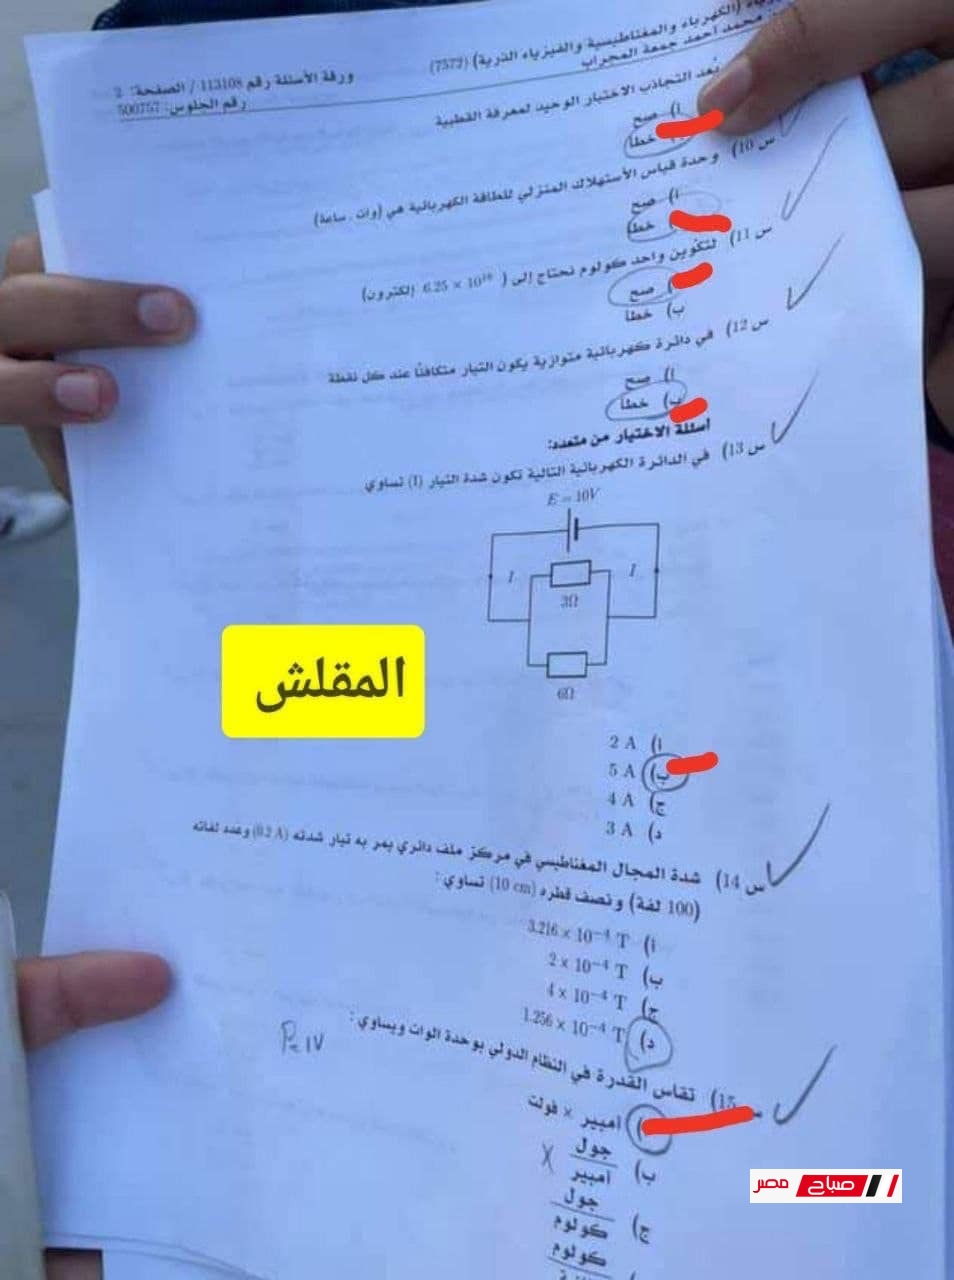 (الكهرباء والمغناطيسية والفيزياء الذرية) (7572)
محمد أحمد جمعة المجراب
ورقة الأسئلة رقم 113108 / الصفحة: 2
رقم الجلوس: 500757
يُعد التجاذب الاختبار الوحيد لمعرفة القطبية
أ) صح
خطأ
س 10) وحدة قياس الأستهلاك المنزلي للطاقة الكهربائية هي (وات . ساعة)
أ) صح
خطأ
س 11) لتكوين واحد كولوم نحتاج إلى ( 6.25 × 10¹⁸ إلكترون)
صح
ب) خطأ
س 12) في دائرة كهربائية متوازية يكون التيار متكافئا عند كل نقطة
أ) صح
ب) خطأ
أسئلة الاختيار من متعدد:
س 13) في الدائرة الكهربائية التالية تكون شدة التيار (I) تساوي
E = 10V
I I
3Ω
6Ω
المقلش
أ) 2 A
ب) 5 A
ج) 4 A
د) 3 A
س 14) شدة المجال المغناطيسي في مركز ملف دائري يمر به تيار شدته (0.2 A) وعدد لفاته
(100 لفة) ونصف قطره (10 cm) تساوي :
أ) 3.216 × 10⁻⁴ T
ب) 2 × 10⁻⁴ T
ج) 4 × 10⁻⁴ T
د) 1.256 × 10⁻⁴ T
س 15) تقاس القدرة في النظام الدولي بوحدة الوات ويساوي :
P=IV
أمبير × فولت
ب) جول
أمبير
ج) جول
كولوم
كولوم
صباح مصر